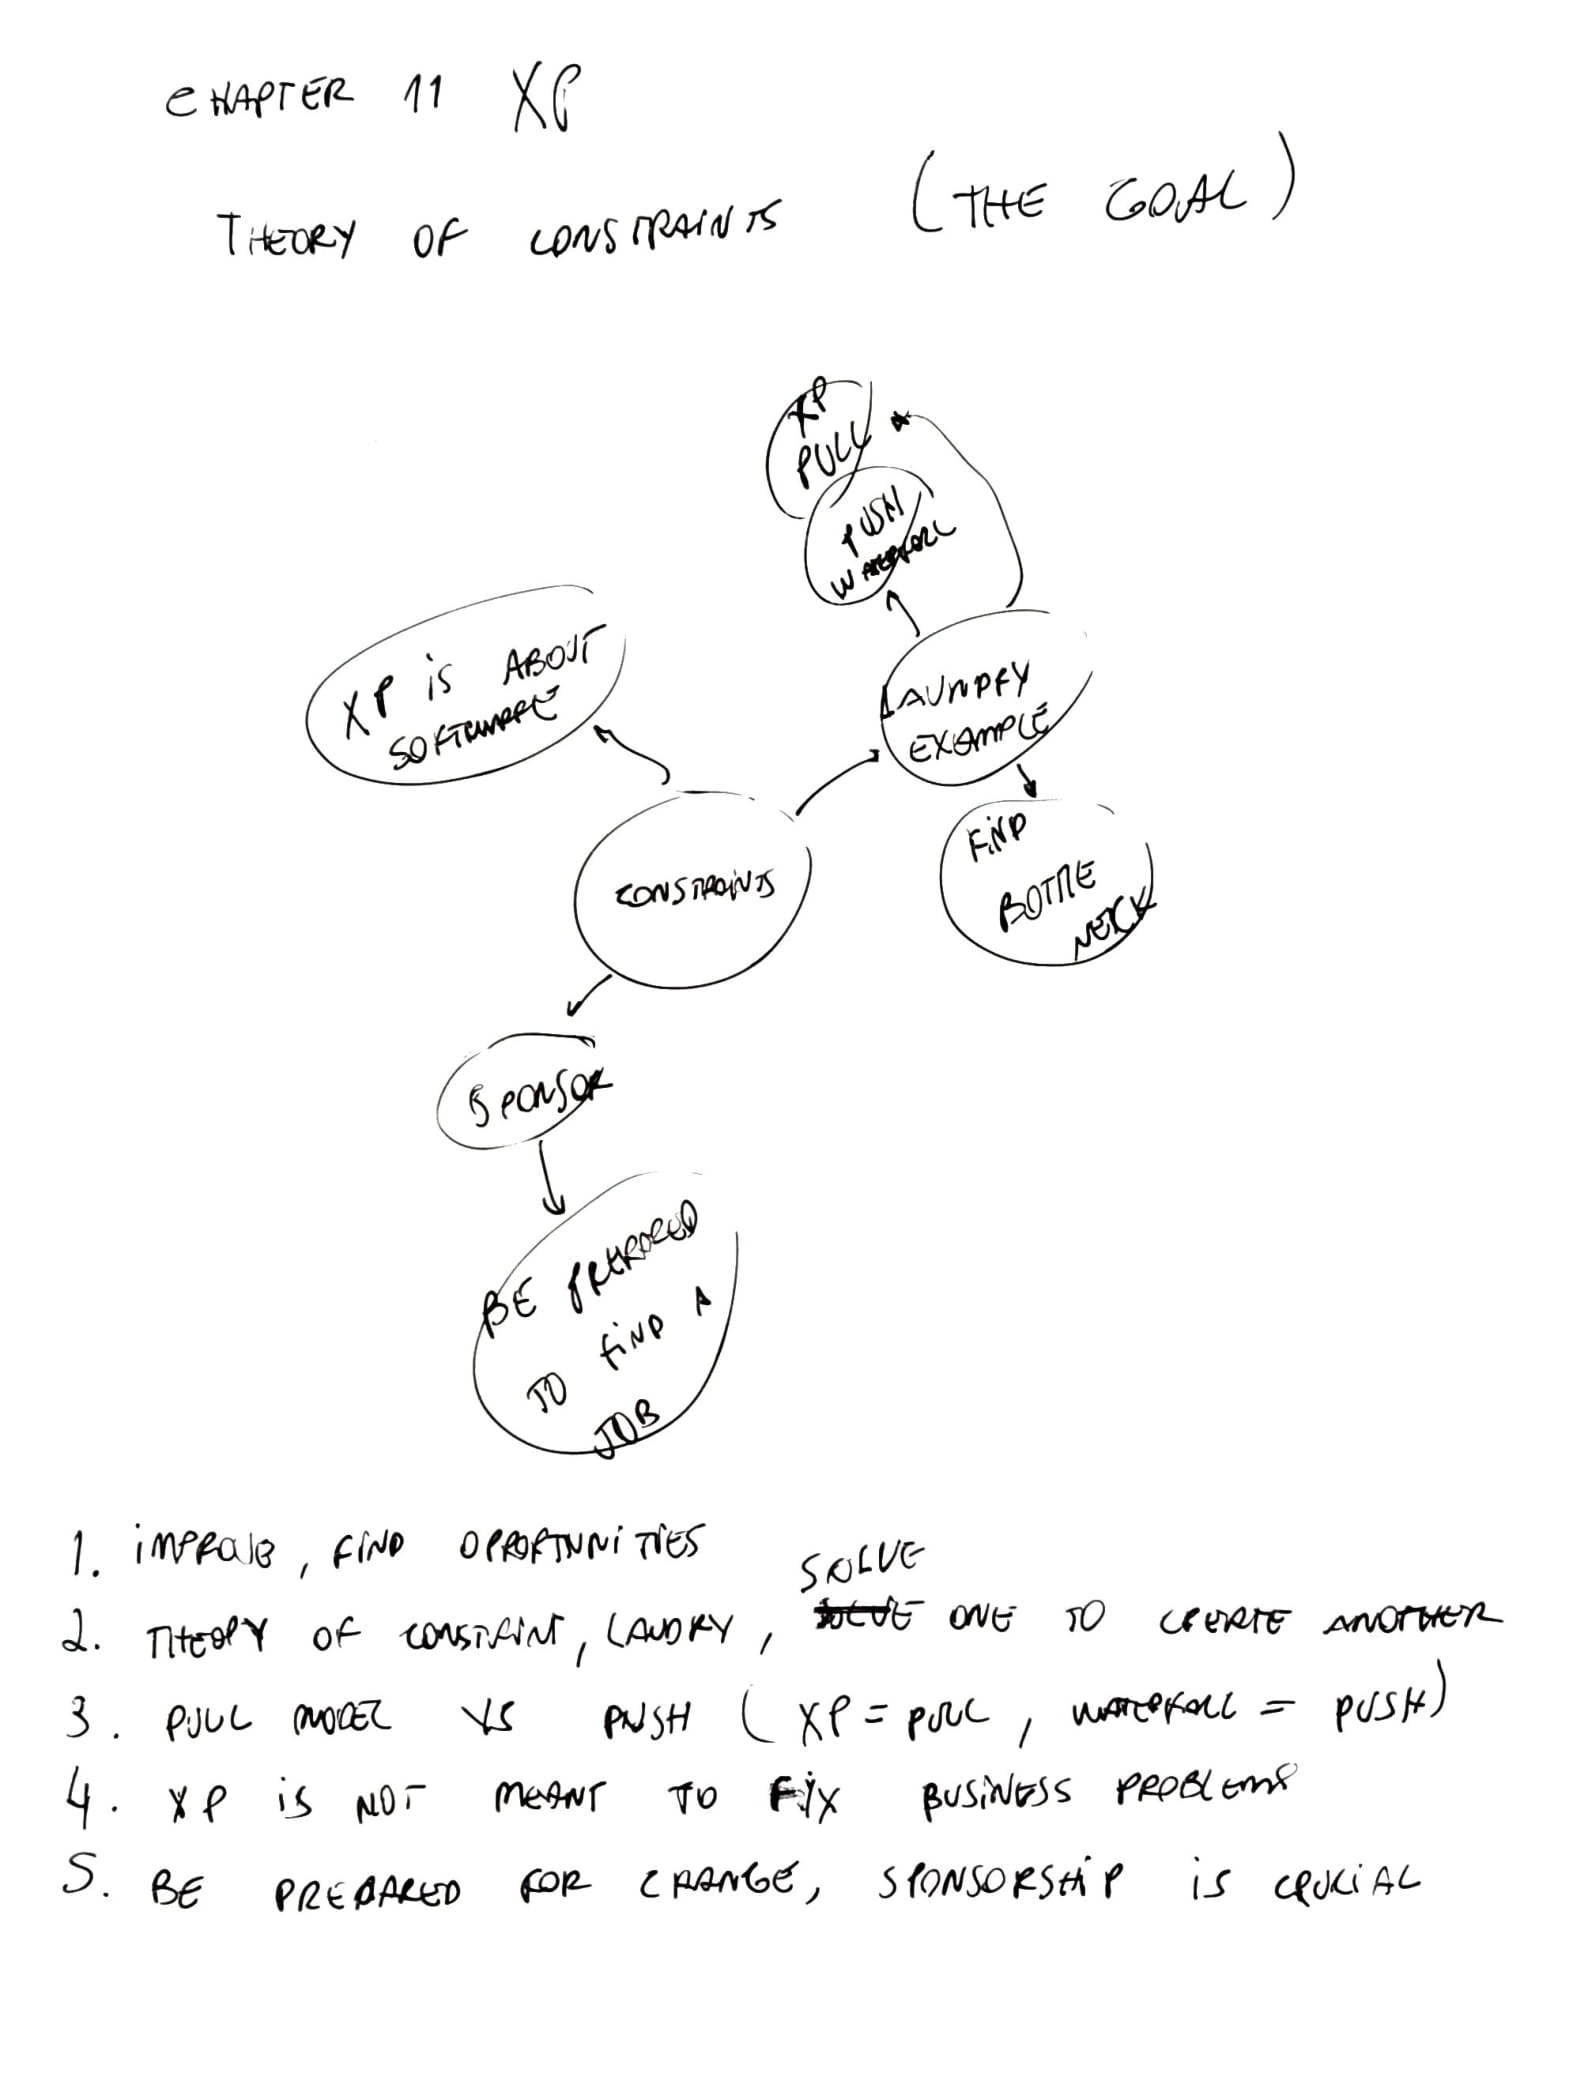 CHAPTER 11 XP
THEORY OF CONSTRAINTS (THE GOAL)
XP
PULL
PUSH
WATERFALL
XP is ABOUT
SOFTWARE
LAUNDRY
EXAMPLE
CONSTRAINTS
FIND
BOTTLE
NECK
SPONSOR
BE PREPARED
TO FIND A
JOB
1. IMPROVE, FIND OPPORTUNITIES
SOLVE
2. THEORY OF CONSTRAINT, LAUDRY, ONE TO CREATE ANOTHER
3. PULL MODEL VS PUSH (XP = PULL, WATERFALL = PUSH)
4. XP is NOT MEANT TO FIX BUSINESS PROBLEMS
5. BE PREPARED FOR CHANGE, SPONSORSHIP is CRUCIAL